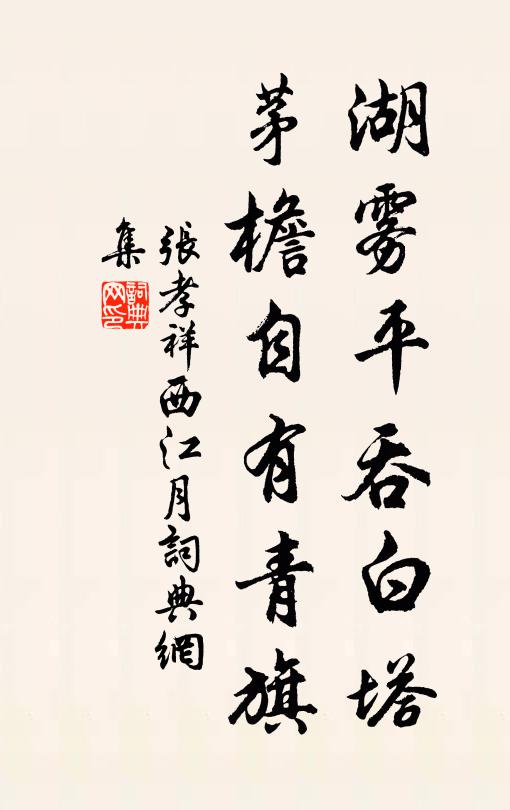 湖雾平吞白塔
茅檐自有青旗
張孝祥西江月詞典網
集
詞典
网印